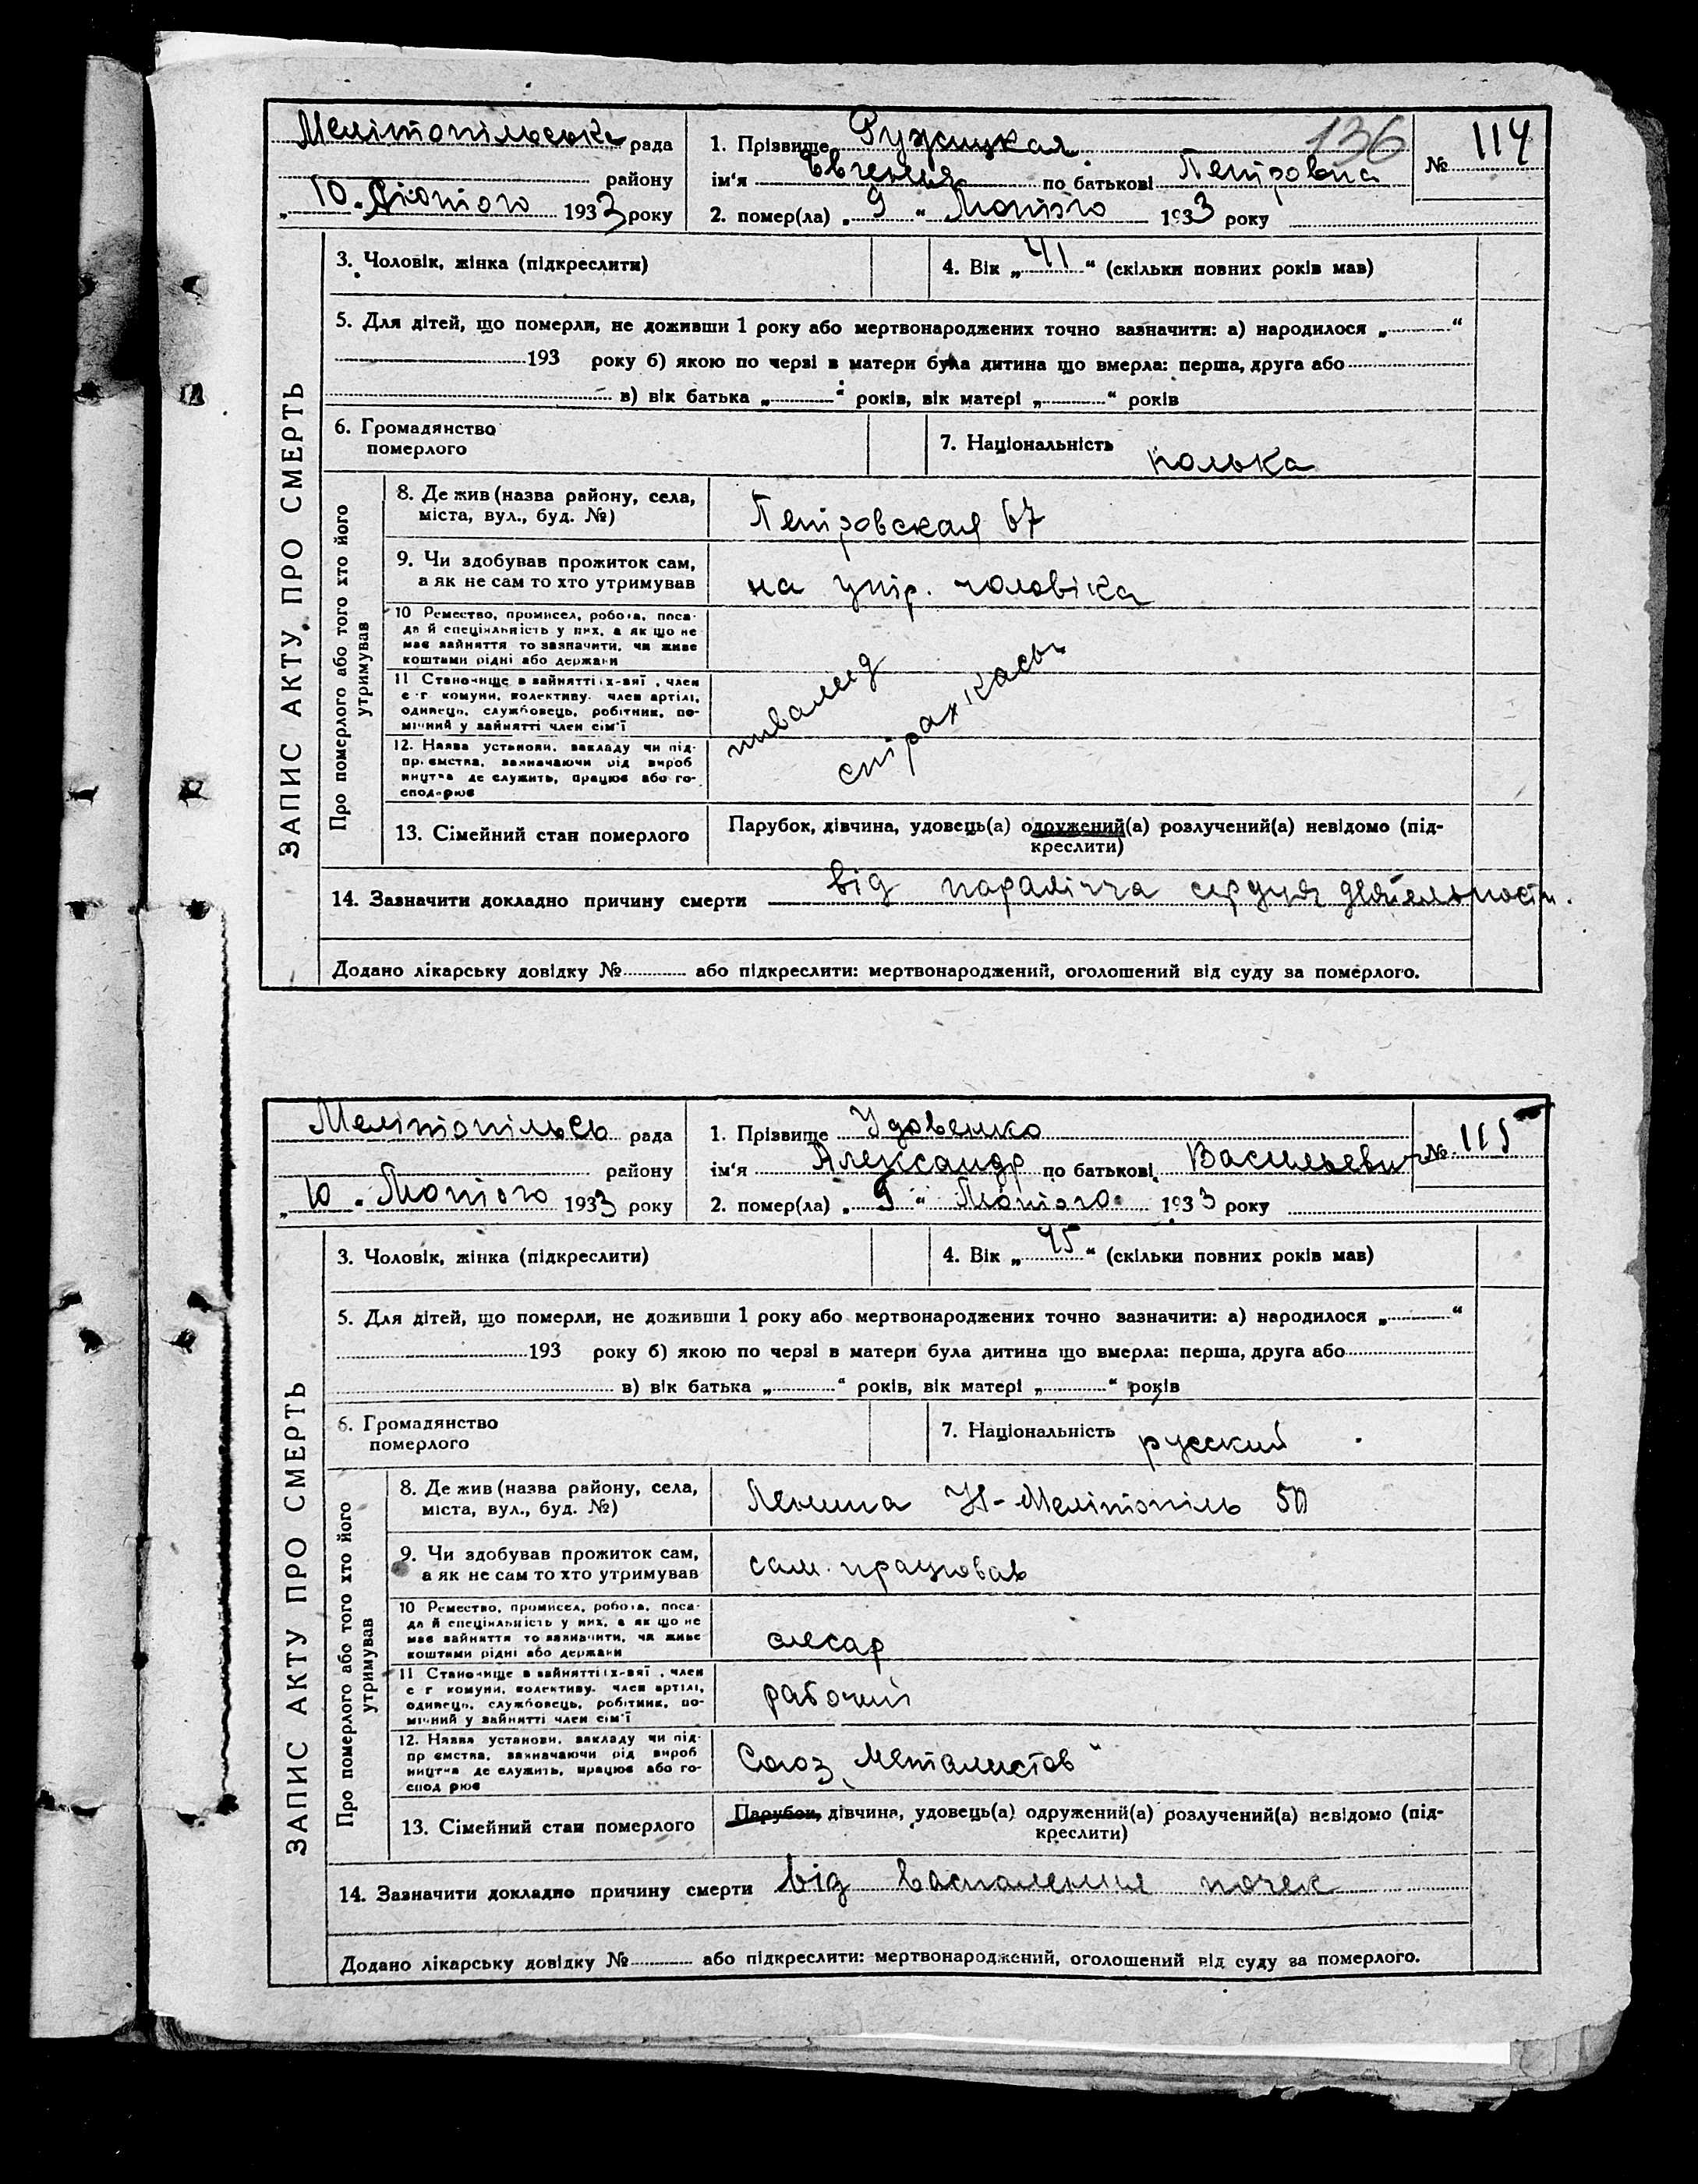 136
Мелітопільська рада
району
„10“ Лютого 1933 року
1. Прізвище Ружицкая
ім'я Евгения по батькові Петровна
2. помер(ла) „9“ Лютого 1933 року
№ 114
ЗАПИС АКТУ ПРО СМЕРТЬ
3. Чоловік, жінка (підкреслити)
4. Вік „41“ (скільки повних років мав)
5. Для дітей, що померли, не доживши 1 року або мертвонароджених точно зазначити: а) народилося „ “
193 року б) якою по черзі в матери була дитина що вмерла: перша, друга або
в) вік батька „ “ років, вік матері „ “ років
6. Громадянство
померлого
7. Національність полька
Про померлого або того хто його
утримував
8. Де жив (назва району, села,
міста, вул., буд. №)
Петровская 67
9. Чи здобував прожиток сам,
а як не сам то хто утримував
на утр. чоловіка
10 Ремество, промисел, робота, поса-
да й спеціяльність у них, а як що не
має зайняття то зазначити, чи живе
коштами рідні або держави
11 Становище в зайнятті їх-ввї, член
с-г комуни, колективу. член артілі,
одинець, службовець, робітник, по-
мічний у зайнятті член сім'ї
12. Назва установи, закладу чи під-
приємства, зазначаючи рід вироб
ництва де служить, працює або го-
сподарює
инвалид
страхкасы
13. Сімейний стан померлого
Парубок, дівчина, удовець(а) одружений(а) розлучений(а) невідомо (під-
креслити)
14. Зазначити докладно причину смерти від параліча сердця деятельности.
Додано лікарську довідку № або підкреслити: мертвонароджений, оголошений від суду за померлого.
Мелітопільсь рада
району
„10“ Лютого 1933 року
1. Прізвище Удовенко
ім'я Александр по батькові Васильевич
2. помер(ла) „9“ Лютого 1933 року
№ 115
ЗАПИС АКТУ ПРО СМЕРТЬ
3. Чоловік, жінка (підкреслити)
4. Вік „45“ (скільки повних років мав)
5. Для дітей, що померли, не доживши 1 року або мертвонароджених точно зазначити: а) народилося „ “
193 року б) якою по черзі в матери була дитина що вмерла: перша, друга або
в) вік батька „ “ років, вік матері „ “ років
6. Громадянство
померлого
7. Національність русский
Про померлого або того хто його
утримував
8. Де жив (назва району, села,
міста, вул., буд. №)
Ленина Н-Мелітопіль 50
9. Чи здобував прожиток сам,
а як не сам то хто утримував
сам працював
10 Ремество, промисел, робота, поса-
да й спеціяльність у них, а як що не
має зайняття то зазначити, чи живе
коштами рідні або держави
слесар
11 Становище в зайнятті їх-ввї, член
с г комуни, колективу. член артілі,
одинець, службовець, робітник, по-
мічний у зайнятті член сім'ї
рабочий
12. Назва установи, закладу чи під-
приємства, зазначаючи рід вироб
ництва де служить, працює або го-
спод рює
Союз „Металистов“
13. Сімейний стан померлого
Парубок, дівчина, удовець(а) одружений(а) розлучений(а) невідомо (під-
креслити)
14. Зазначити докладно причину смерти від воспаления почек
Додано лікарську довідку № або підкреслити: мертвонароджений, оголошений від суду за померлого.